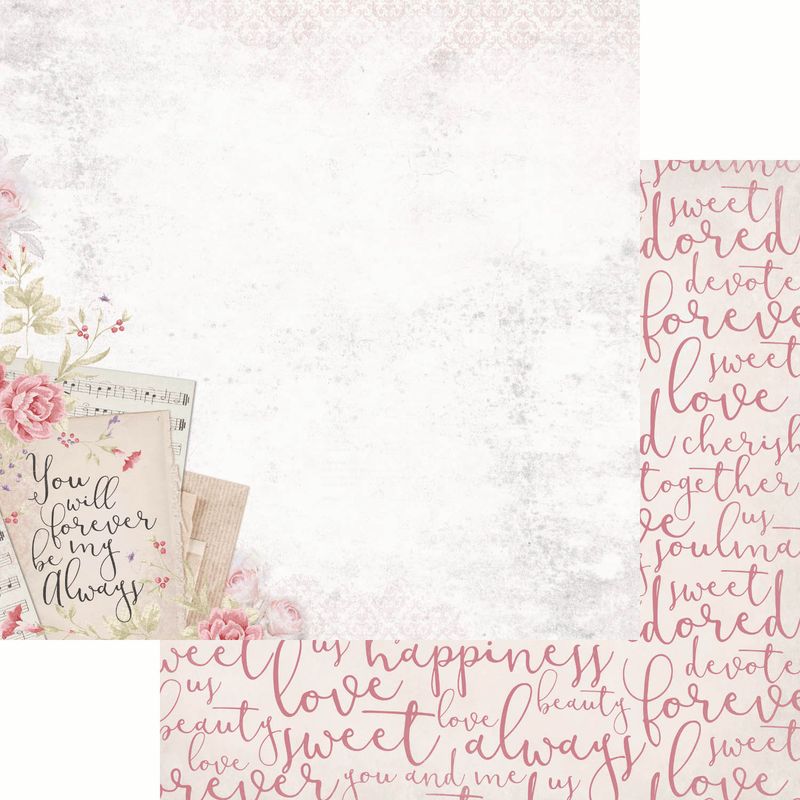 You
will
forever
be my
Always
soulma
sweet
dored
devote
forev
sweet
love
cherish
together
us
soulma
sweet
dored
devote
forev
sweet
love
sweet us happiness
us love
beauty
love
beauty sweet always
love
forever you and me us